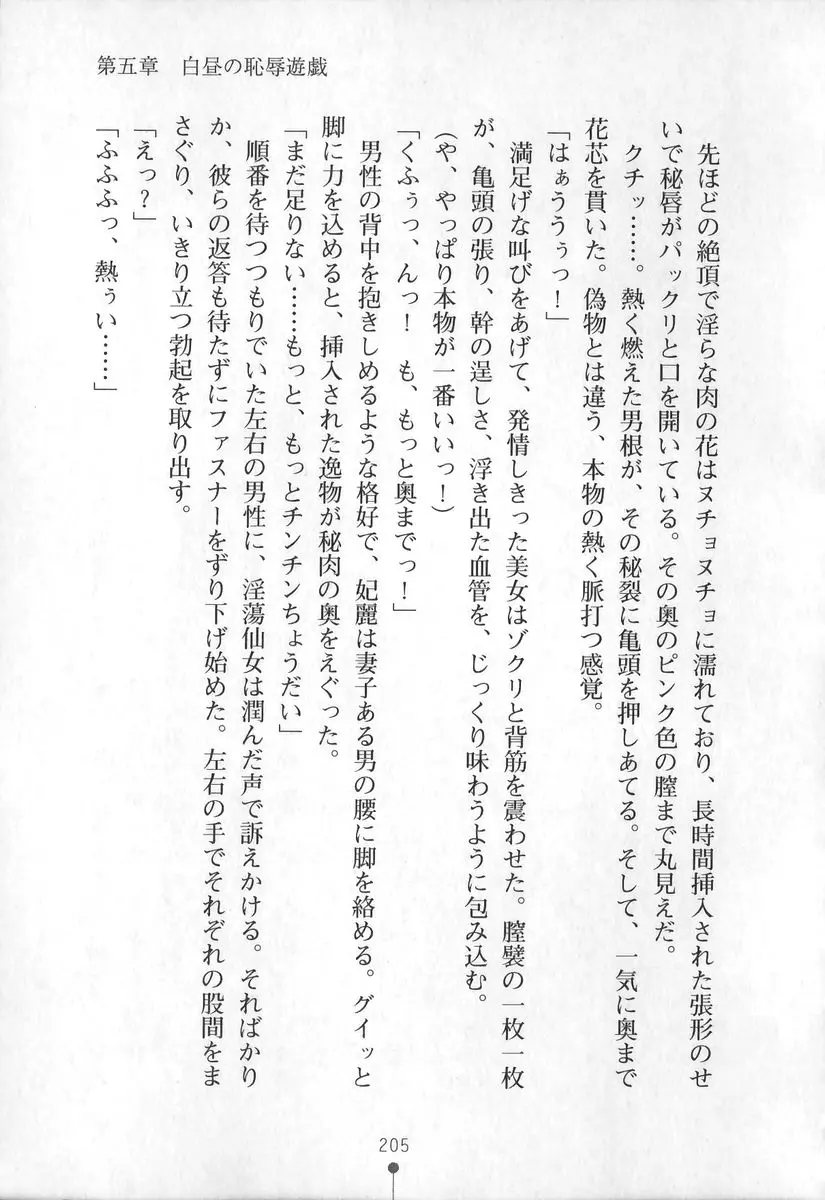 第五章　白昼の恥辱遊戯
　先ほどの絶頂で淫らな肉の花はヌチョヌチョに濡れており、長時間挿入された張形のせ
いで秘唇がパックリと口を開いている。その奥のピンク色の膣まで丸見えだ。
　クチッ……。熱く燃えた男根が、その秘裂に亀頭を押しあてる。そして、一気に奥まで
花芯を貫いた。偽物とは違う、本物の熱く脈打つ感覚。
「はぁううぅっ！」
　満足げな叫びをあげて、発情しきった美女はゾクリと背筋を震わせた。膣襞の一枚一枚
が、亀頭の張り、幹の逞しさ、浮き出た血管を、じっくり味わうように包み込む。
（や、やっぱり本物が一番いいっ！）
「くふぅっ、んっ！　も、もっと奥までっ！」
　男性の背中を抱きしめるような格好で、妃麗は妻子ある男の腰に脚を絡める。グイッと
脚に力を込めると、挿入された逸物が秘肉の奥をえぐった。
「まだ足りない……もっと、もっとチンチンちょうだい」
　順番を待つつもりでいた左右の男性に、淫蕩仙女は潤んだ声で訴えかける。そればかり
か、彼らの返答も待たずにファスナーをずり下げ始めた。左右の手でそれぞれの股間をま
さぐり、いきり立つ勃起を取り出す。
「えっ？」
「ふふふっ、熱ぅい……」
205